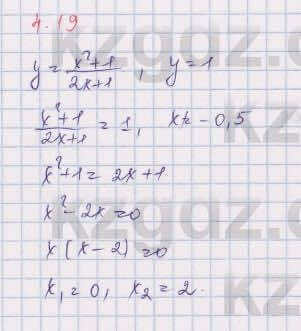 4.19
y = x²+1 / 2x+1 , y = 1
x²+1 / 2x+1 = 1, x ≠ - 0,5
x²+1 = 2x+1
x² - 2x = 0
x (x - 2) = 0
x₁ = 0, x₂ = 2.
kzgdz.com